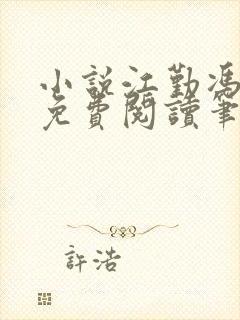 小說江勤馮
免費閱讀筆
許浩